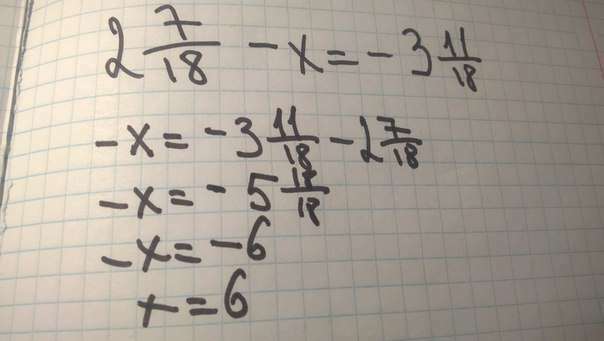 2 7/18 - x = - 3 11/18
- x = - 3 11/18 - 2 7/18
- x = - 5 18/18
- x = - 6
x = 6